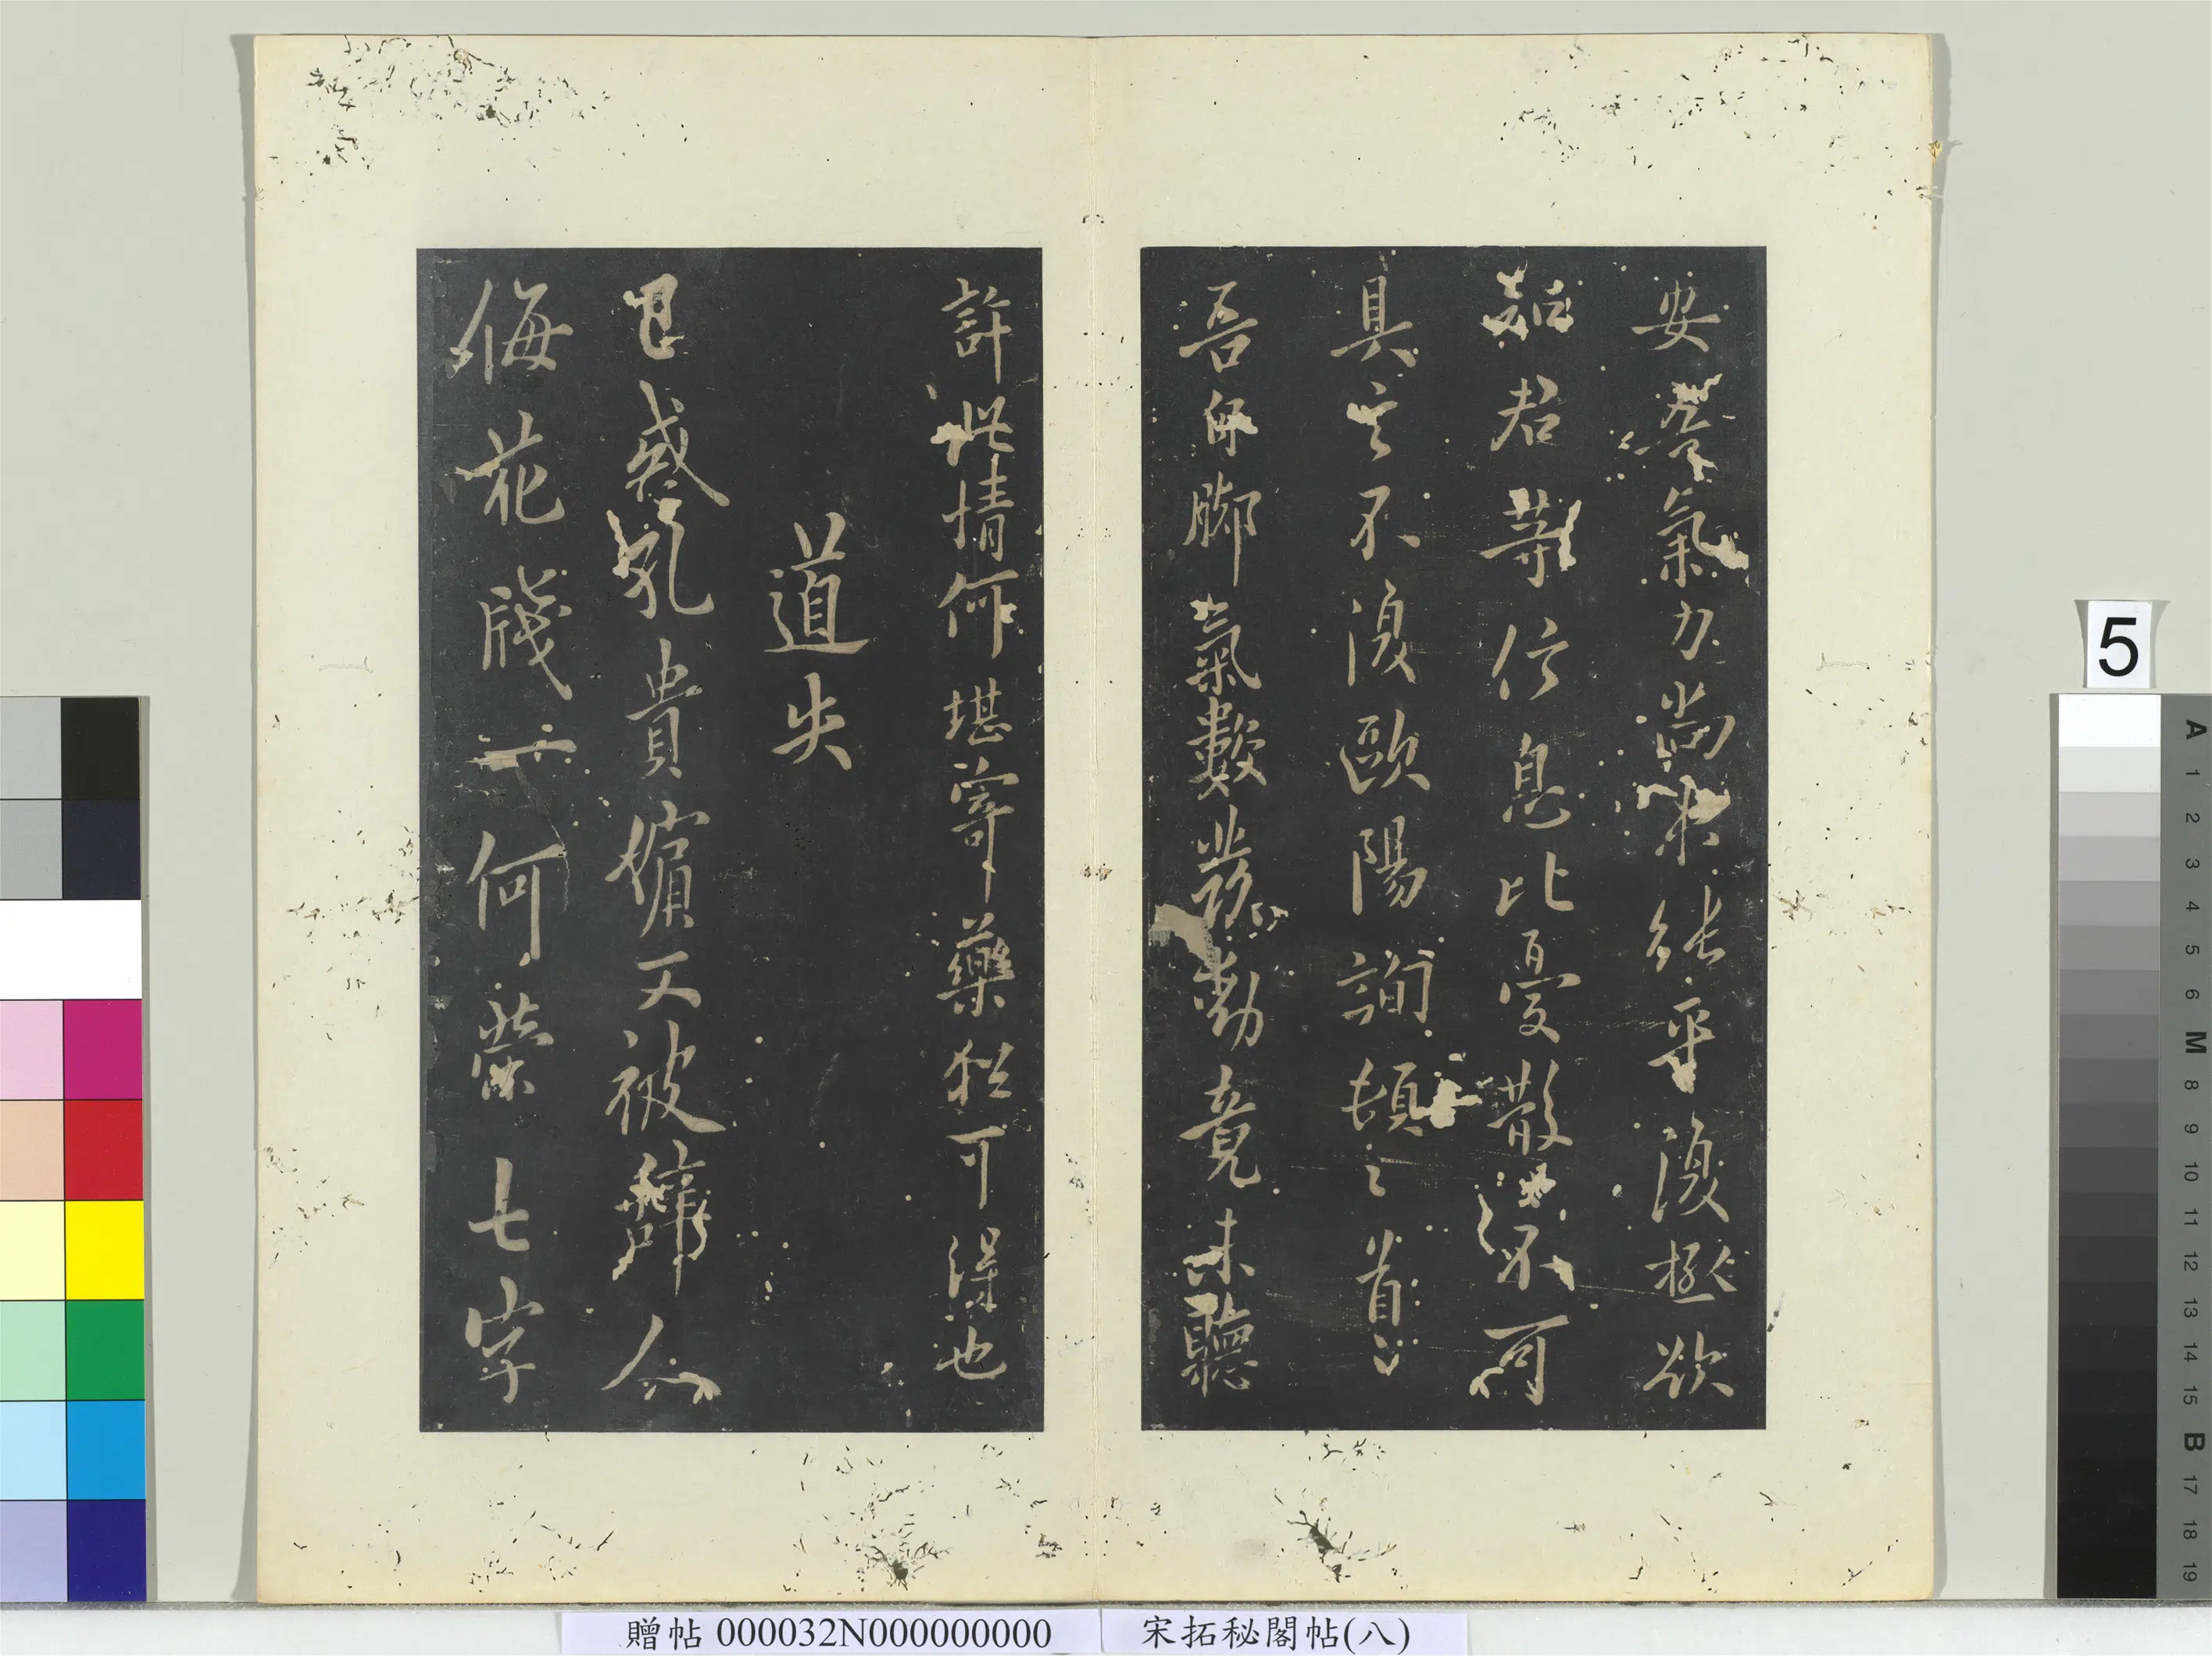 安氣力尚未能平復極欲
知君等信息比憂散不可
具言不復歐陽詢頓〻首〻
吾每脚氣數發動竟未聽
許此情何堪寄藥猶可得也
道失
已惑孔貴嬪又被辭人
侮花牋一何榮七字
5
贈帖 000032N000000000 宋拓秘閣帖(八)
A 1 2 3 4 5 6 M 8 9 10 11 12 13 14 15 B 17 18 19